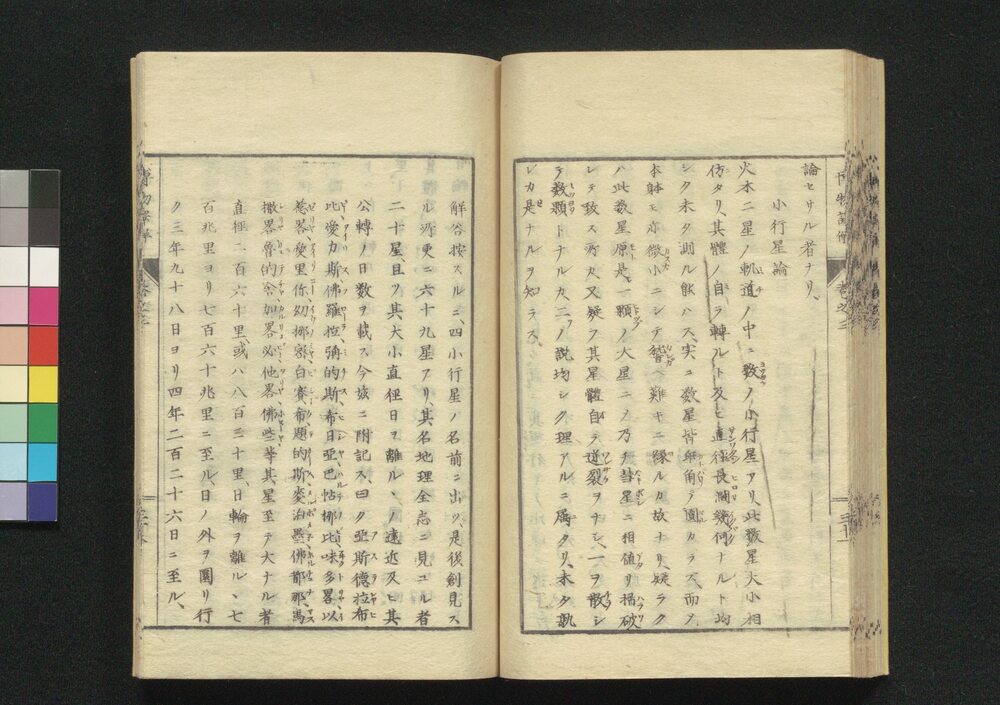 論セサル者ナリ、
小行星論
火木二星ノ軌道ノ中ニ数ノ小行星アリ、此数星大小相
仿タリ、其體ノ自ラ轉ルト及ヒ直徑長濶幾何ナルト均
シク未タ測ル能ハス、実ニ数星皆 角ヲ圜カラス、而
本躰モ亦微小ニシテ 難キニ縁ルカ故ナリ、疑ラク
ハ此数星原是一顆ノ大星ニノ乃チ彗星ニ相値リ搨破
シテ致ス所カ、又疑フ其星體自ラ迸裂ヲナシ、一ヲ散シ
テ数顆トナルカ、二ノ説均シク理アルニ属タリ、未タ孰
レカ是ナルヲ知ラス
解谷按スルニ、四小行星ノ名前ニ出ツ、是後創見ス
ル所更ニ六十九星アリ、其名地理全志ニ見ユル者
二十星且ツ其大小直徑日ヲ離ルヽノ遠近及ヒ其
公轉ノ日数ヲ載ス今玆ニ附記ス曰ク亞斯德拉布
比愛力斯佛羅拉彌的斯布日亞巴帖挪比味多畧以
慈畧愛里你幼挪 白賽布題的斯麥治墨佛都那馬
撒畧魯的舍加畧必他畧佛些等其星至テ大ナル者
直徑二百六十里、或八百三十里、日輪ヲ離ルヽ七
百兆里ヨリ七百六十兆里ニ至ル、日ノ外ヲ圜リ行
ク三年九十八日ヨリ四年二百二十六日ニ至ル、